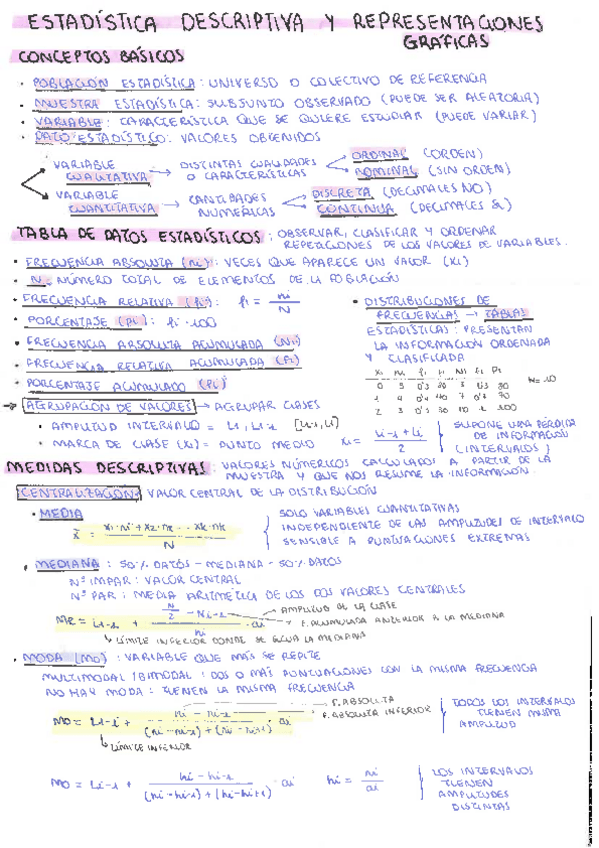 ESTADÍSTICA DESCRIPTIVA Y REPRESENTACIONES
GRÁFICAS
CONCEPTOS BÁSICOS
• POBLACIÓN ESTADÍSTICA: UNIVERSO O COLECTIVO DE REFERENCIA
• MUESTRA ESTADÍSTICA: SUBSUNTO OBSERVADO (PUEDE SER ALEATORIA)
• VARIABLE: CARACTERÍSTICA QUE SE QUIERE ESTUDIAR (PUEDE VARIAR)
• DATO ESTADÍSTICO: VALORES OBTENIDOS
VARIABLE CUALITATIVA → DISTINTAS CUALIDADES O CARACTERÍSTICAS
ORDINAL (ORDEN)
NOMINAL (SIN ORDEN)
VARIABLE CUANTITATIVA → CANTIDADES NUMÉRICAS
DISCRETA (DECIMALES NO)
CONTINUA (DECIMALES SÍ)
TABLA DE DATOS ESTADÍSTICOS: OBSERVAR, CLASIFICAR Y ORDENAR
REPETICIONES DE LOS VALORES DE VARIABLES.
• FRECUENCIA ABSOLUTA (ni): VECES QUE APARECE UN VALOR (xi)
• N: NÚMERO TOTAL DE ELEMENTOS DE LA POBLACIÓN
• FRECUENCIA RELATIVA (fi): fi = ni / N
• PORCENTAJE (pi): fi · 100
• FRECUENCIA ABSOLUTA ACUMULADA (Ni)
• FRECUENCIA RELATIVA ACUMULADA (Fi)
• PORCENTAJE ACUMULADO (Pi)
• DISTRIBUCIONES DE
FRECUENCIAS → TABLAS
ESTADÍSTICAS: PRESENTAN
LA INFORMACIÓN ORDENADA
Y CLASIFICADA
N=10
→ AGRUPACIÓN DE VALORES → AGRUPAR CLASES
• AMPLITUD INTERVALO =
• MARCA DE CLASE (xi) = PUNTO MEDIO xi = Li-1 + Li / 2
SUPONE UNA PÉRDIDA
DE INFORMACIÓN
(INTERVALOS)
MEDIDAS DESCRIPTIVAS: VALORES NUMÉRICOS CALCULADOS A PARTIR DE LA
MUESTRA Y QUE NOS RESUME LA INFORMACIÓN.
CENTRALIZACIÓN: VALOR CENTRAL DE LA DISTRIBUCIÓN
• MEDIA
SOLO VARIABLES CUANTITATIVAS
INDEPENDIENTE DE LAS AMPLITUDES DE INTERVALO
SENSIBLE A PUNTUACIONES EXTREMAS
• MEDIANA: 50% DATOS - MEDIANA - 50% DATOS
Nº IMPAR: VALOR CENTRAL
Nº PAR: MEDIA ARITMÉTICA DE LOS DOS VALORES CENTRALES
AMPLITUD DE LA CLASE
F. ACUMULADA ANTERIOR A LA MEDIANA
LÍMITE INFERIOR DONDE SE
• MODA (Mo): VARIABLE QUE MÁS SE REPITE
MULTIMODAL / BIMODAL: DOS O MÁS PUNTUACIONES CON LA MISMA FRECUENCIA
NO HAY MODA: TIENEN LA MISMA FRECUENCIA
F. ABSOLUTA
F. ABSOLUTA INFERIOR
TODOS LOS INTERVALOS
TIENEN MISMA
AMPLITUD
LÍMITE INFERIOR
hi = ni / ai
LOS INTERVALOS
TIENEN
AMPLITUDES
DISTINTAS